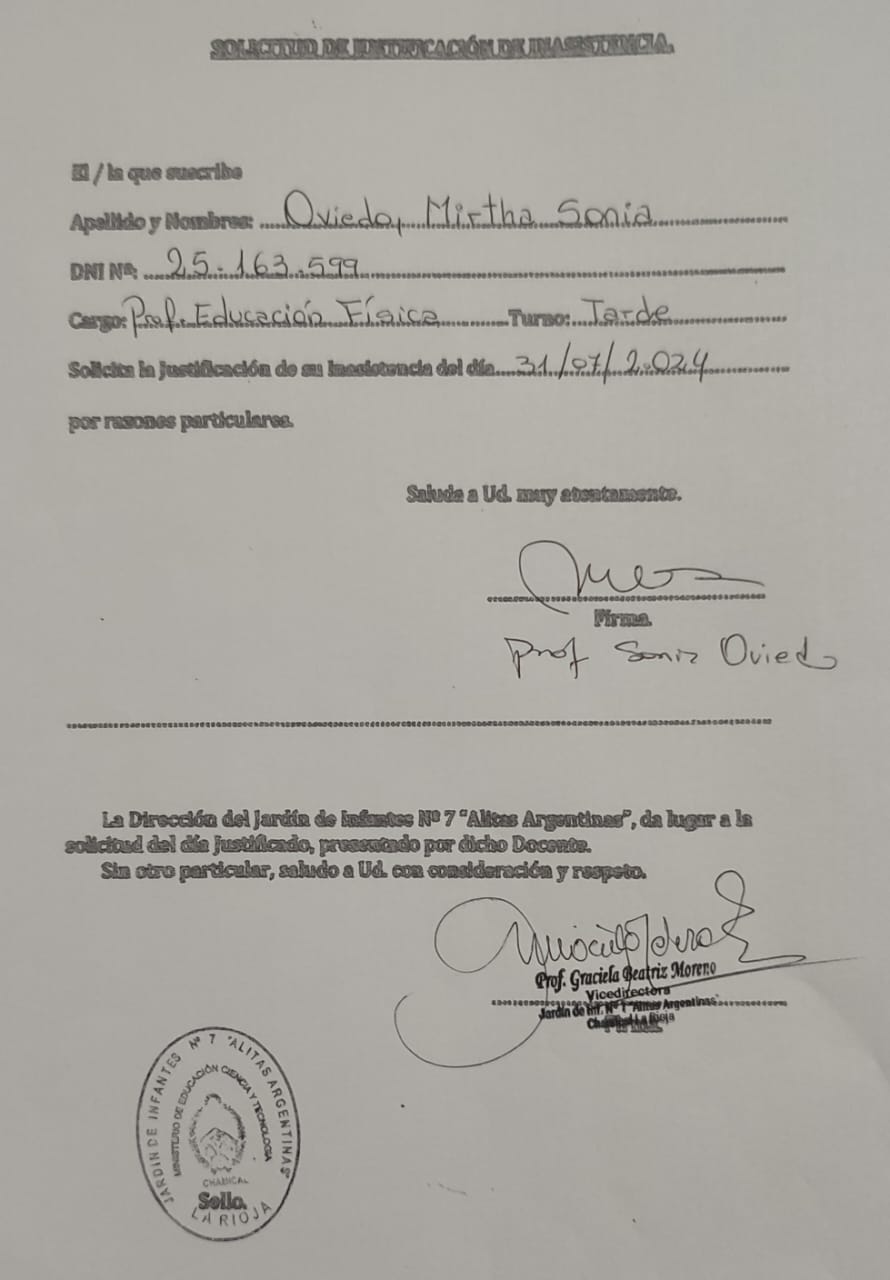 SOLICITUD DE JUSTIFICACIÓN DE INASISTENCIA.
El / la que suscribe
Apellido y Nombres: Oviedo, Mirtha Sonia
DNI Nº: 25.163.599
Cargo: Prof. Educación Física Turno: Tarde
Solicita la justificación de su inasistencia del día 31/07/2.024
por razones particulares.
Saluda a Ud. muy atentamente.
Firma.
Prof Sonia Oviedo
La Dirección del Jardín de Infantes Nº 7 "Alitas Argentinas", da lugar a la
solicitud del día justificado, presentado por dicho Docente.
Sin otro particular, saludo a Ud. con consideración y respeto.
Prof. Graciela Beatriz Moreno
Vicedirectora
Jardín de Inf. Nº 7 "Alitas Argentinas"
Chamical La Rioja
JARDIN DE INFANTES Nº 7 "ALITAS ARGENTINAS"
MINISTERIO DE EDUCACIÓN CIENCIA Y TECNOLOGIA
CHAMICAL
Sello.
LA RIOJA